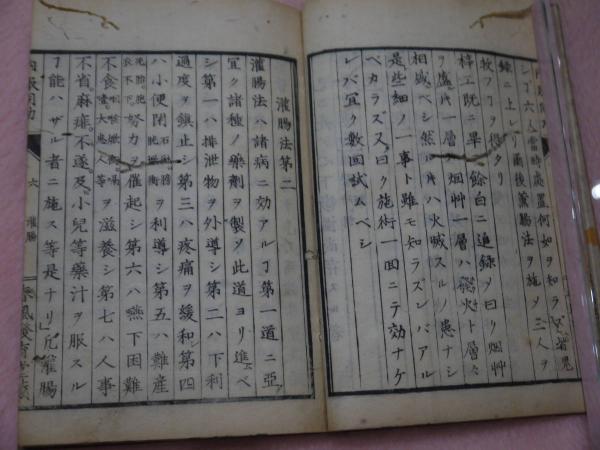 シ丁六人當時處置何如ヲ知ラズ
録ニ上レリ爾後薫腸法ヲ施メ三人ヲ
救フヿヲ得タリ
梓工既ニ畢ル餘白ニ追録メ曰ク烟艸
ヲ盛ル一層烟艸一層ハ熾火ト層々
相戚ベシ然ルトキハ火滅スルノ患ナシ
是些細ノ一事ト雖モ知ラズンバアル
ベカラズ又曰ク施術一回ニテ効ナケ
レバ冝ク數回試ムベシ
灌腸法第二
灌腸法ハ諸病ニ効アルヿ第一道ニ亞
冝ク諸種ノ藥劑ヲ製メ此道ヨリ進ベ
シ第一ハ排泄物ヲ外導シ第二ハ下利
過度ヲ鎮止シ第三ハ疼痛ヲ緩和シ第四
ハ小便閉ヲ利導シ第五ハ難産
努力ヲ催起シ第六ハ嚥下困難
不食等ヲ滋養シ第七ハ人事
不省麻痺不遂及小兒等藥汁ヲ服スル
ヿ能ハザル者ニ施ス等是ナリ凡灌腸
六 灌腸